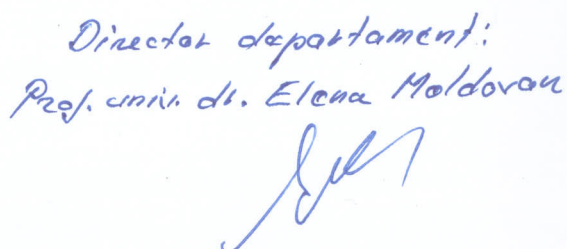 Director departament:
Prof. univ. dr. Elena Moldovan